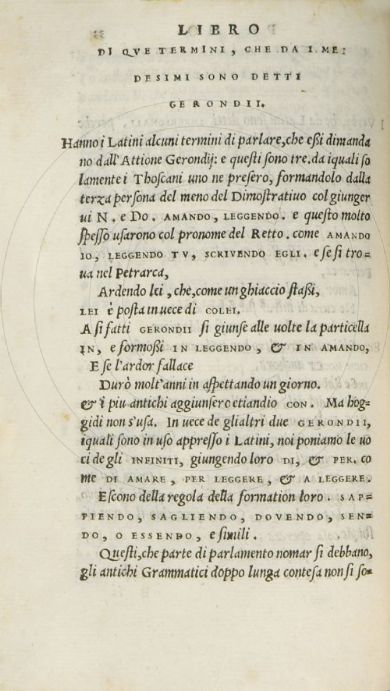 LIBRO
DI QVE TERMINI, CHE DA I ME:
DESIMI SONO DETTI
GERONDII.
Hanno i Latini alcuni termini di parlare, che eßi dimanda
no dall'Attione Gerondij: e questi sono tre. da iquali so
lamente i Thoscani uno ne presero, formandolo dalla
terza persona del meno del Dimostratiuo col giunger
ui N. e Do. AMANDO, LEGGENDO. e questo molto
speſſo usarono col pronome del Retto. come AMANDO
IO, LEGGENDO TV, SCRIVENDO EGLI. e se si tro=
ua nel Petrarca,
Ardendo lei, che, come un ghiaccio staßi,
LEI è posta in uece di COLEI.
A si fatti GERONDII si giunse alle uolte la particella
IN, e formoßi IN LEGGENDO, & IN AMANDO,
E se l'ardor fallace
Durò molt'anni in aspettando un giorno.
& i piu antichi aggiunsero etiandio CON. Ma hog=
gidi non s'usa. In uece de gli altri due GERONDII,
iquali sono in uso appresso i Latini, noi poniamo le uo
ci de gli INFINITI, giungendo loro DI, & PER. co
me DI AMARE, PER LEGGERE, & A LEGGERE.
Escono della regola della formation loro. SAP=
PIENDO, SAGLIENDO, DOVENDO, SEN=
DO, O ESSENDO, e simili.
Questi, che parte di parlamento nomar si debbano,
gli antichi Grammatici doppo lunga contesa non si so=